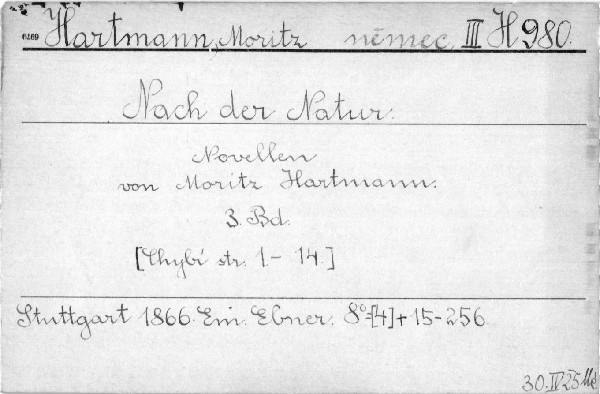 Hartmann, Moritz němec III H 980.
Nach der Natur.
Novellen
von Moritz Hartmann.
3. Bd.
[Chybí str. 1.- 14.]
Stuttgart 1866. Em. Ebner. 8°-[4]+15-256
30.IV.25